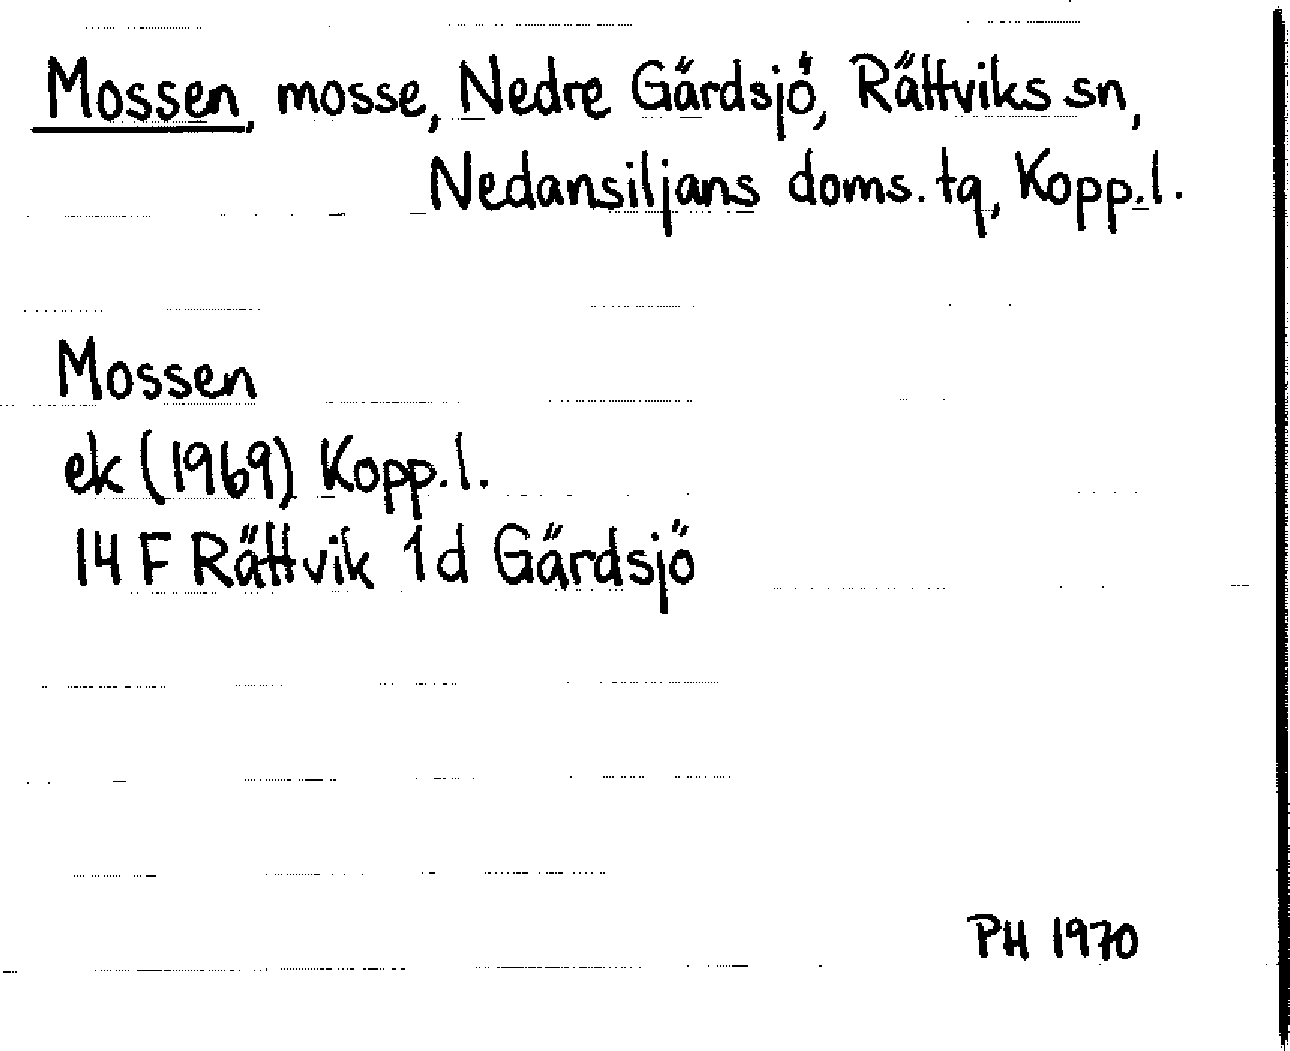 Mossen, mosse, Nedre Gärdsjö, Rättviks sn,
Nedansiljans doms. tg, Kopp.l.
Mossen
ek (1969) Kopp.l.
14 F Rättvik 1d Gärdsjö
PH 1970